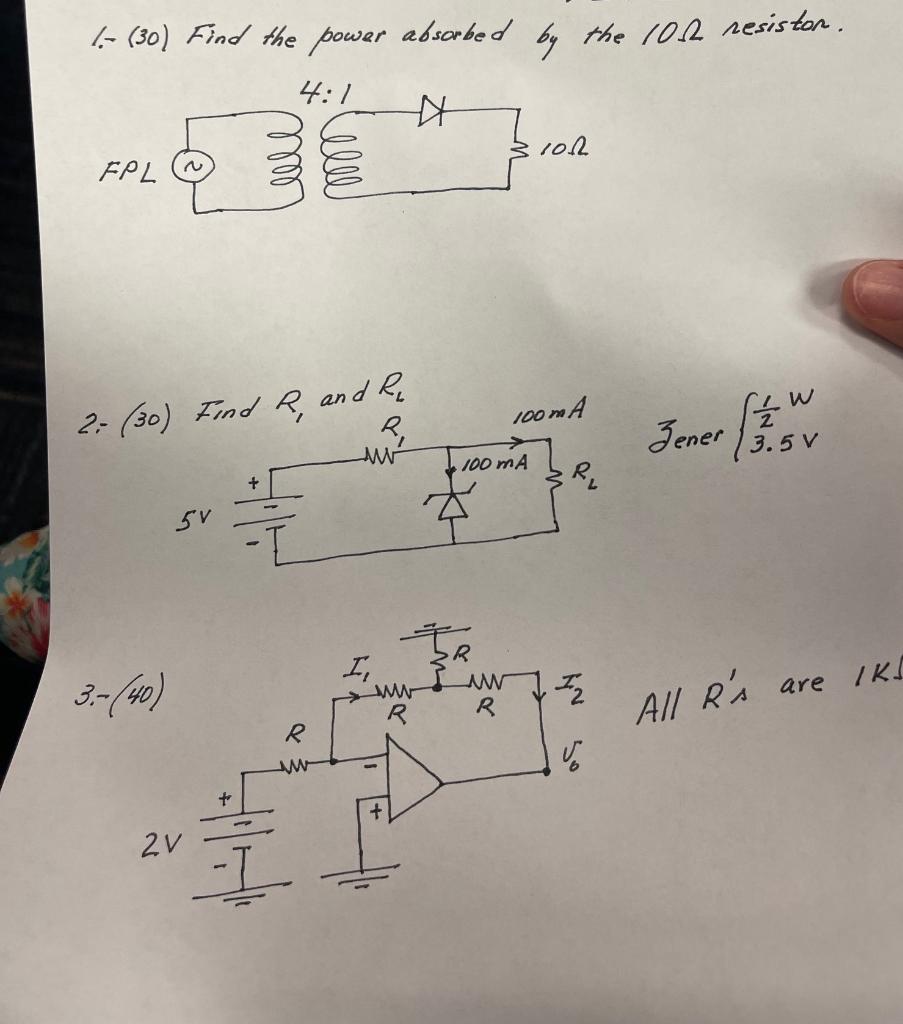 1.- (30) Find the power absorbed by the 10Ω resistor.
4:1
FPL
~
10Ω
2.- (30) Find R₁ and R_L
R₁
100mA
100mA
+
5V
-
R_L
Zener { 1/2 W
3.5 V
3.- (40)
R
I₁
R
R
I₂
All R's are 1K
R
-
+
V₀
+
2V
-